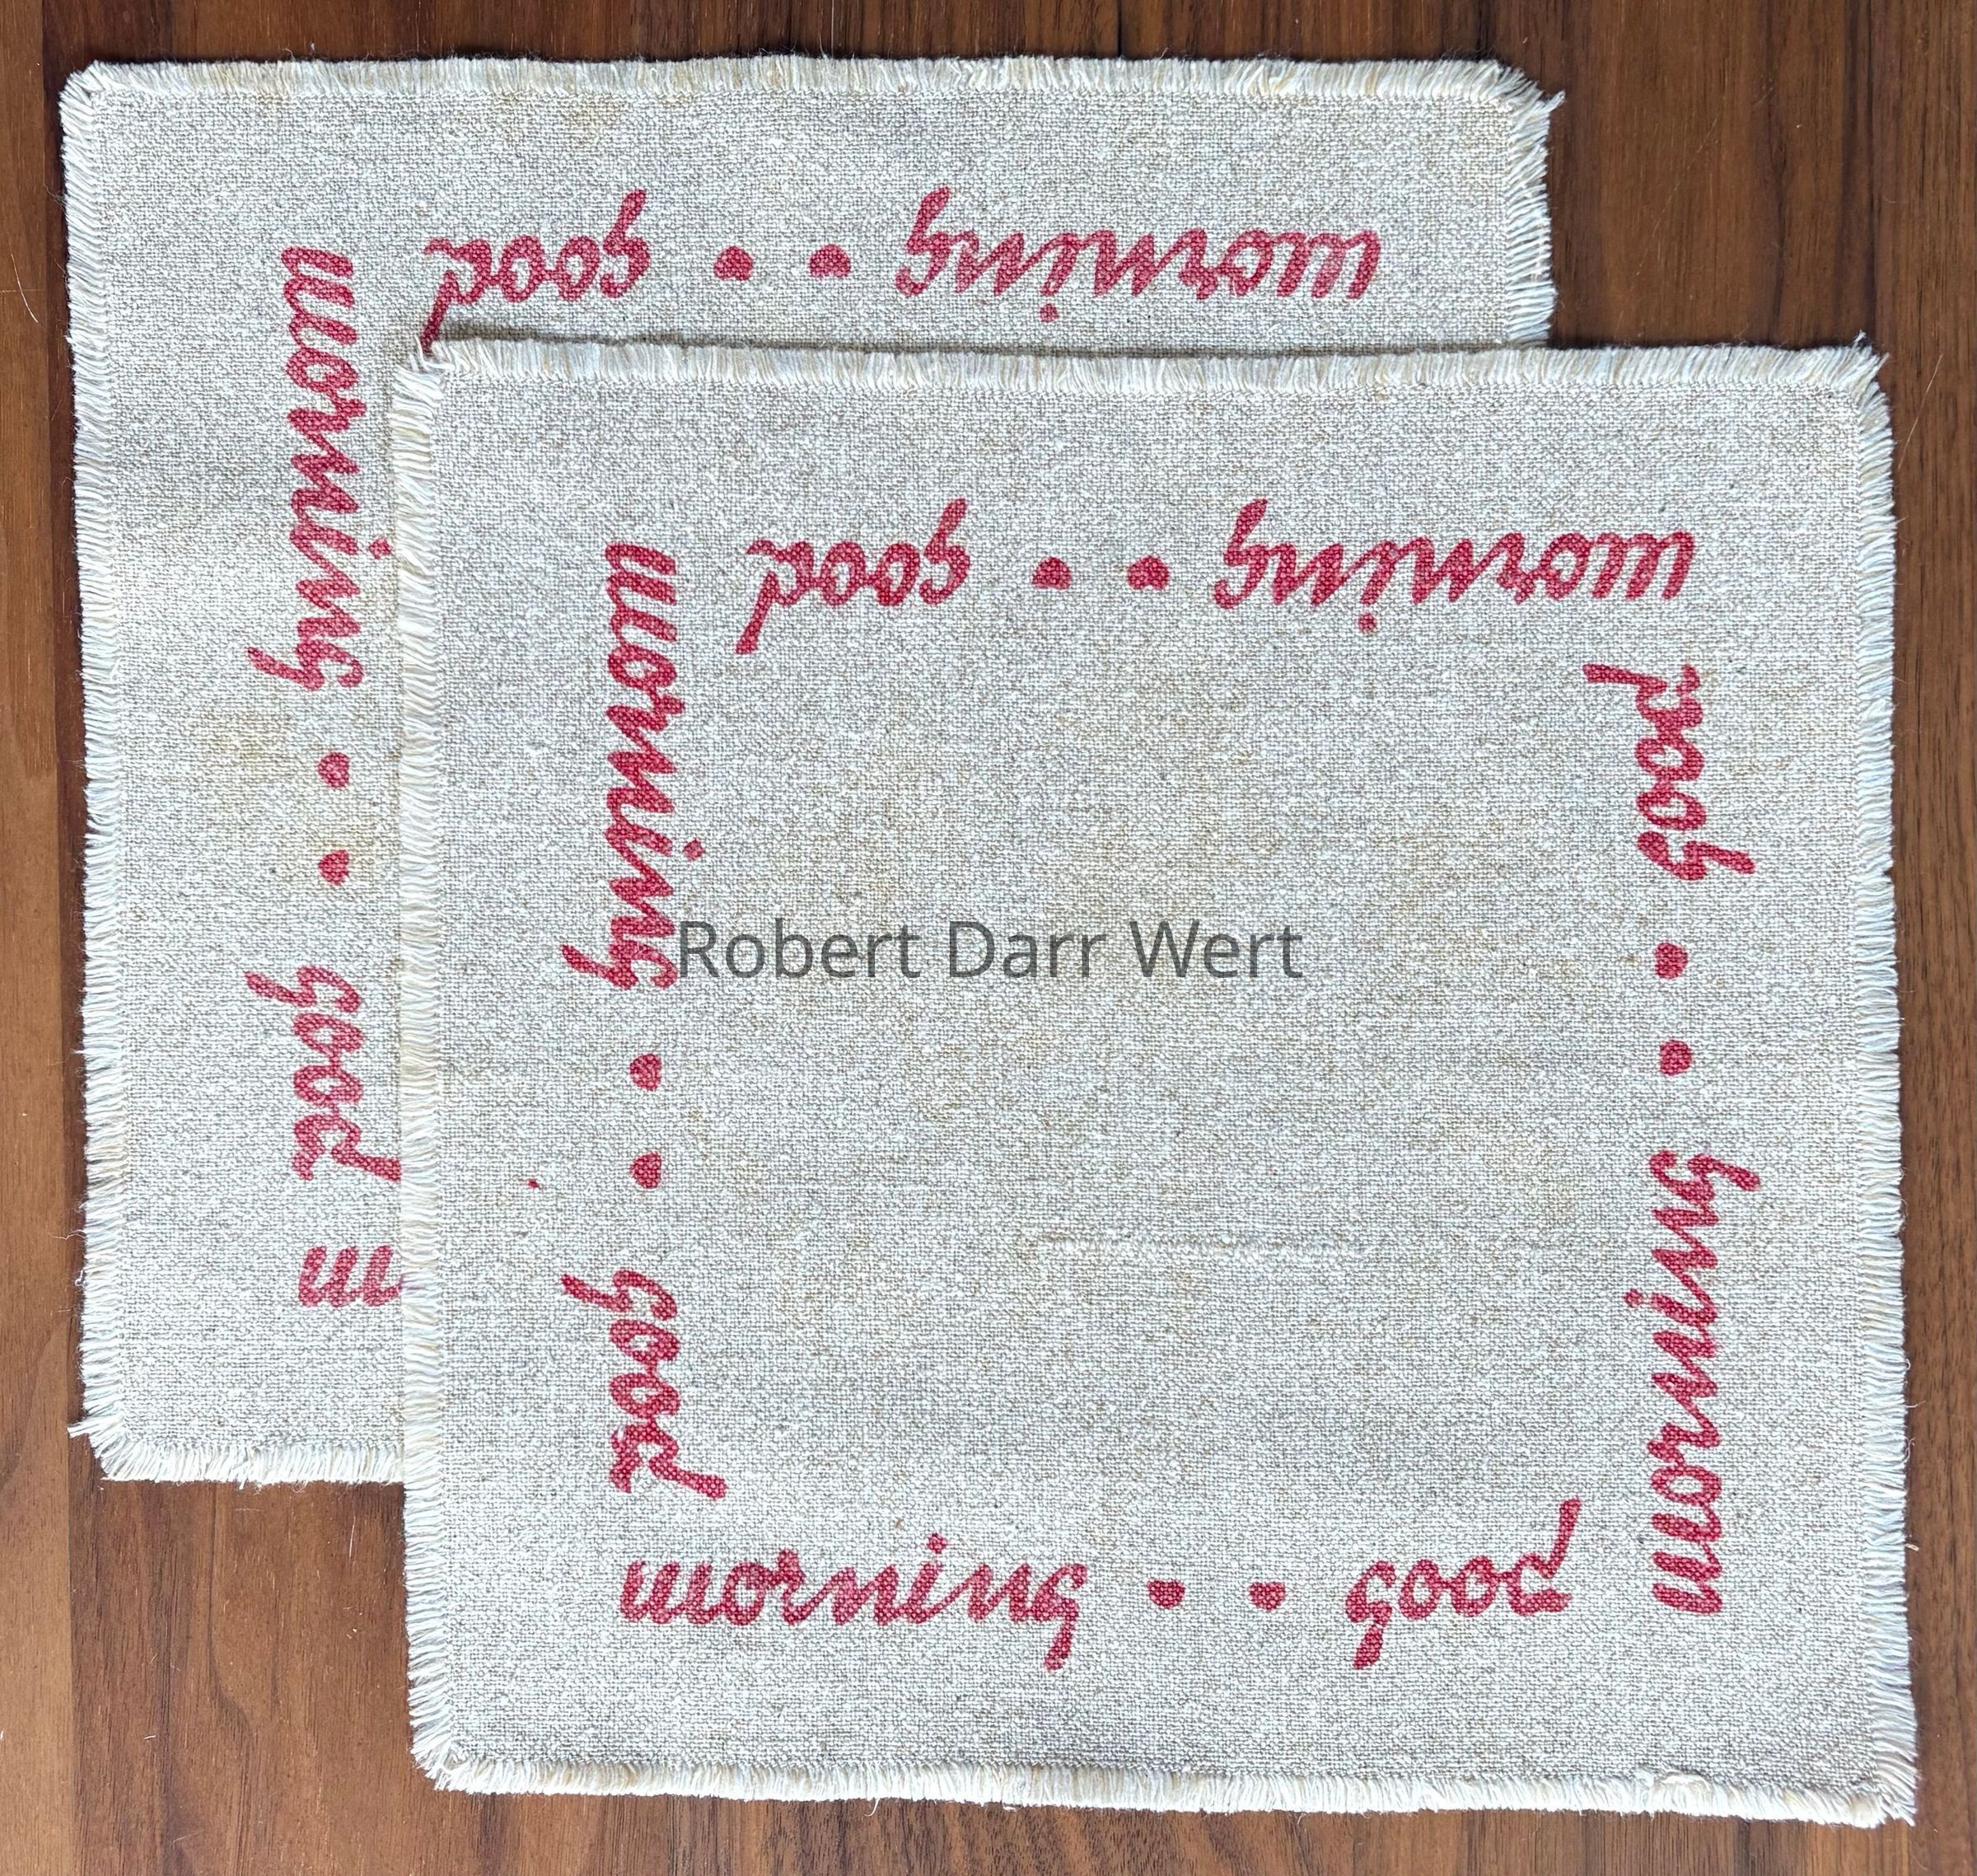 morning • • good
morning • • good
morning • • good
morning • • good
morning • • good
morning • • good
Robert Darr Wert